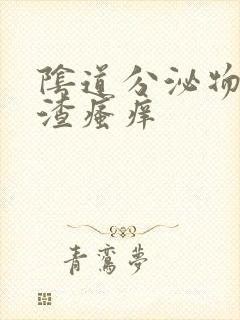 陰道分泌物
渣瘙痒
青鸞夢